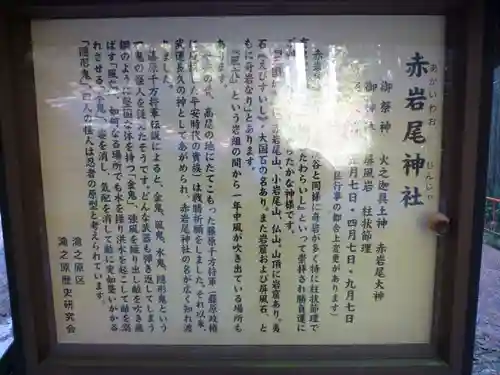 赤岩尾神社
あかいわお じんじゃ
御祭神 火之迦具土神 赤岩尾大神
御神体 屏風岩 柱状節理
五月七日・四月七日・九月七日
行事の都合上変更があります)
谷と同様に奇岩が多く特に柱状節理で
たわらいし」といって崇拝され勝負運に
たかな神様です。
岩尾山、小岩尾山、仏山。山頂に岩窟あり。夷
石(えびすいし)、大国石の名あり。また岩窟および屏風石、と
もに奇岩なり」とあります。
『風穴』という岩組の間から一年中風が吹き出ている場所も
あります。
高尾の地にたてこもった藤原千方将軍(藤原政権
に反抗した平安時代の貴族)は戦勝祈願をしました。それ以来、
武運長久の神として崇められ、赤岩尾神社の名が永く知れ渡
りました。
藤原千方将軍伝説によると、金鬼、風鬼、水鬼、隠形鬼という
四鬼の怪人を従えたそうです。どんな武器も弾き返してしまう
鋼のように堅固な体を持つ「金鬼」、強風を繰り出し敵を吹き飛
ばす「風鬼」、如何なる場所でも水を操り洪水を起こして敵を溺
れさせる「水鬼」、姿を消し、気配を消して敵に奇襲をいかかる
「隠形鬼」、四人の怪人は忍者の原型と考えられています。
滝之原区
滝之原歴史研究会